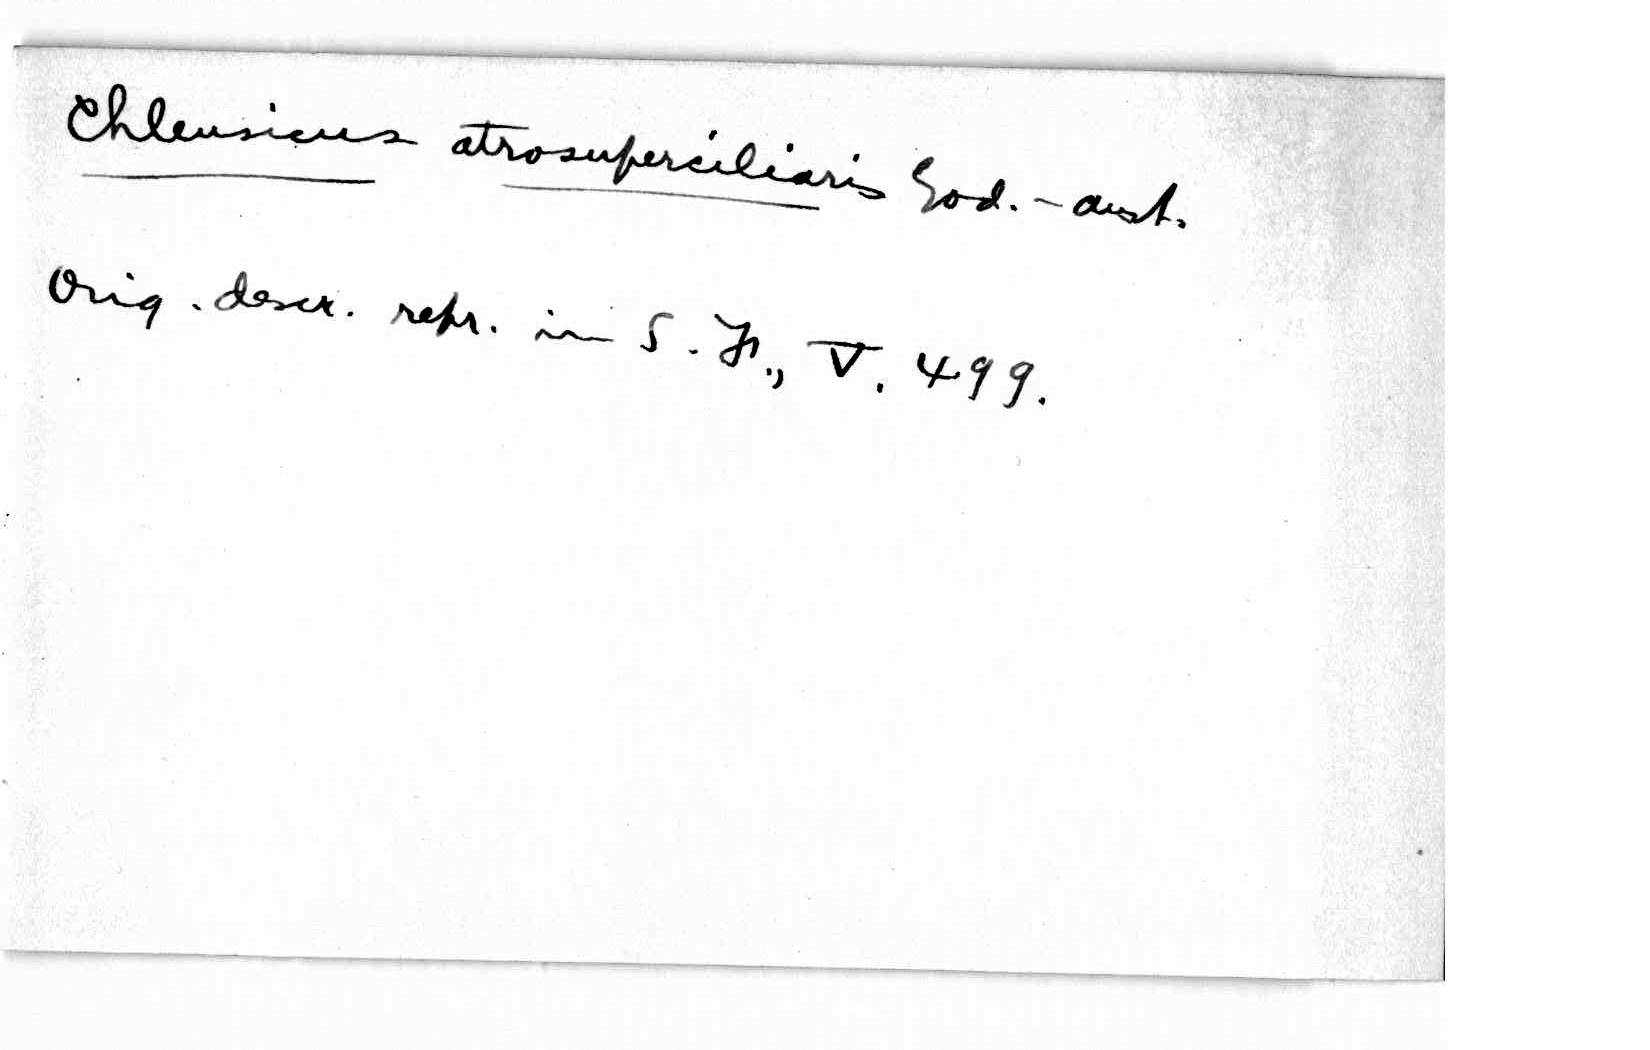 Chleusicus atrosuperciliaris God.-aust.
Orig. descr. repr. in S. F., V. 499.